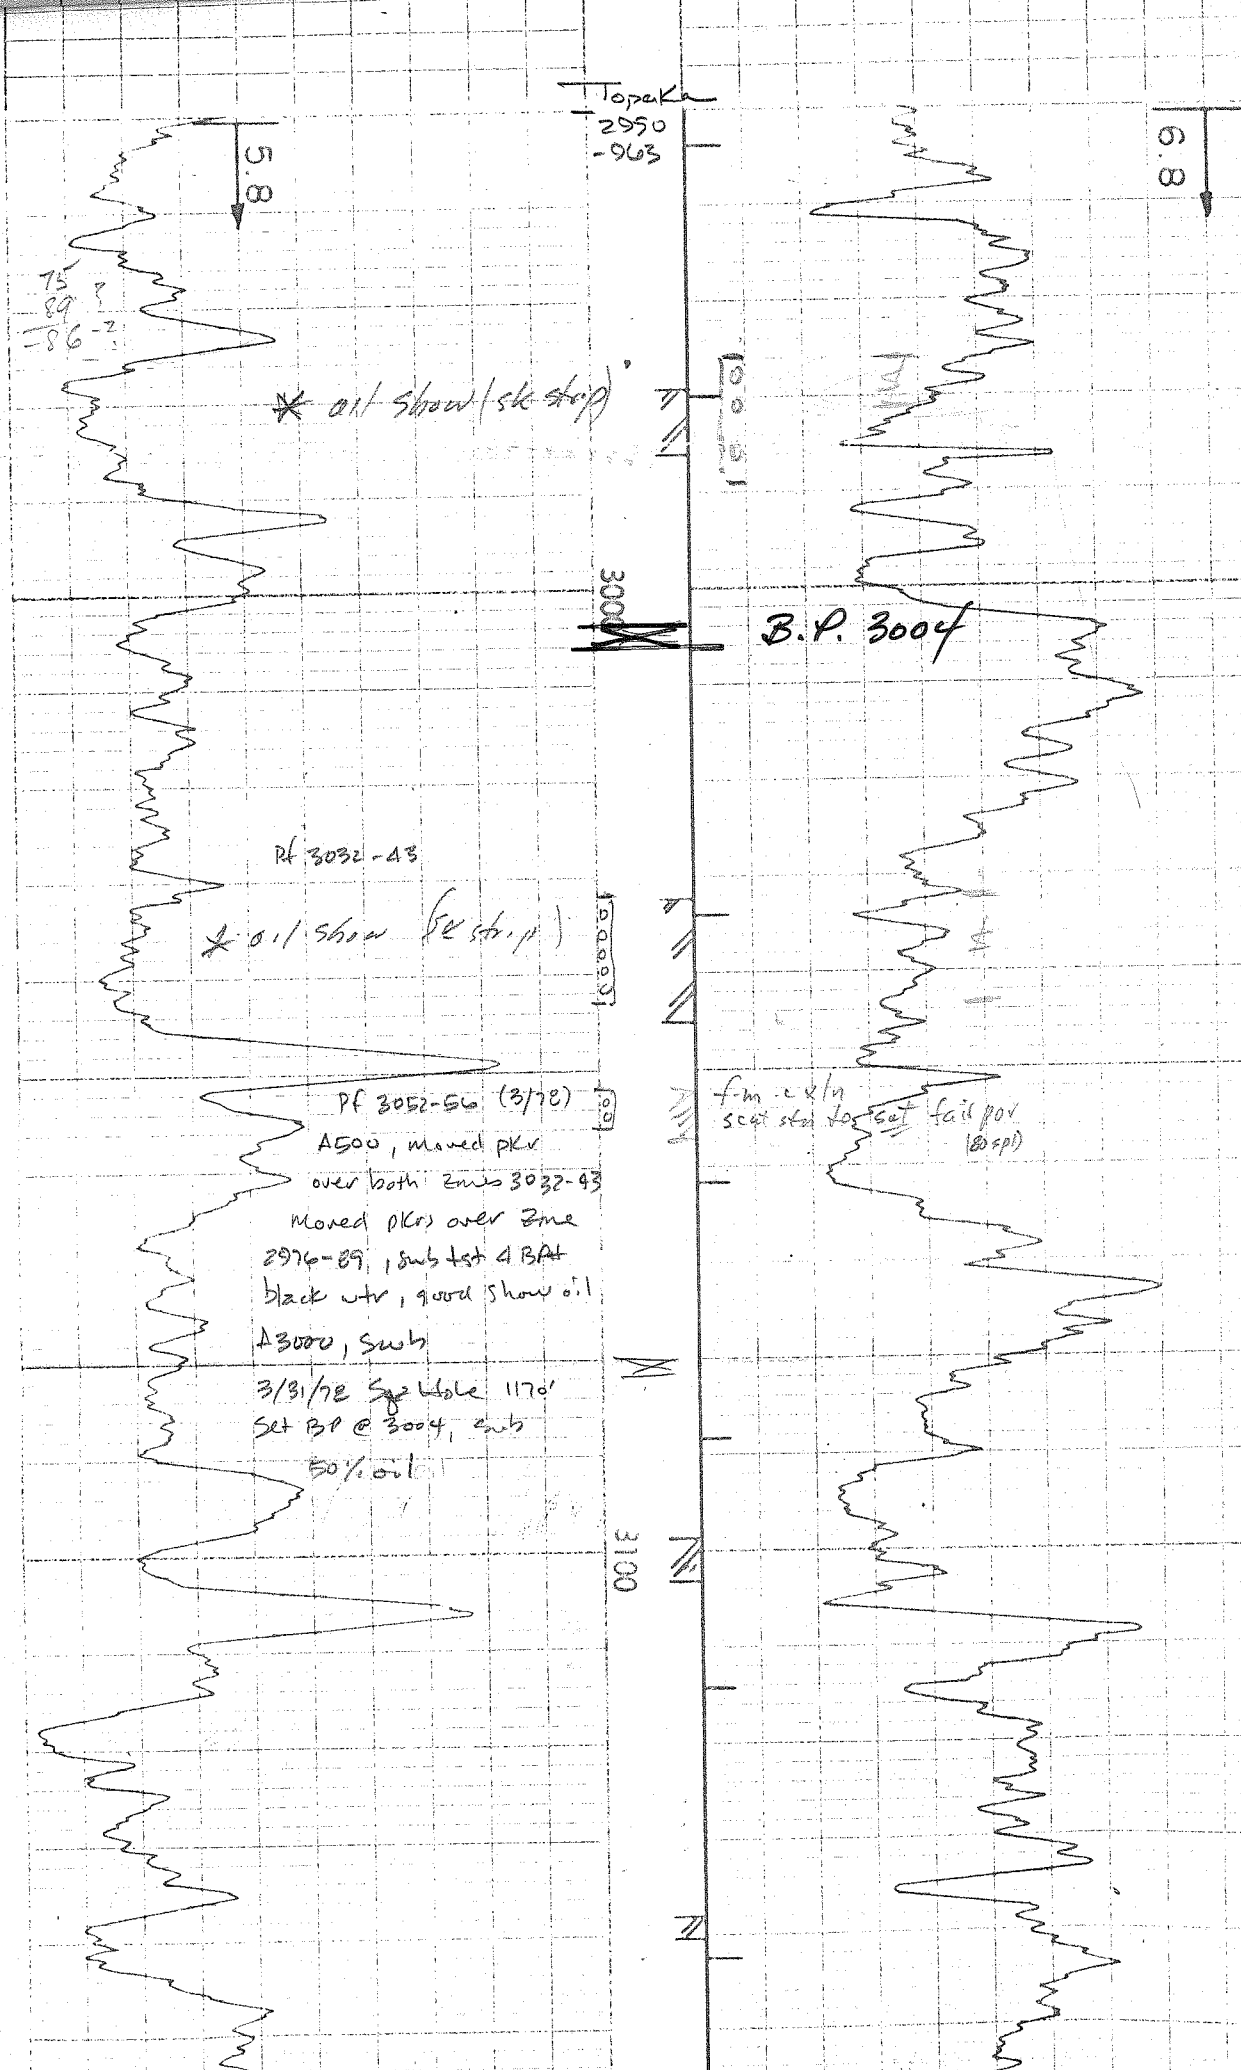 Topeka
2950
-963
5.8
6.8
75
89 ?
-86-?
* oil show (sk strip)
3000
B.P. 3004
Pf 3032-43
* oil show (sk strip)
Pf 3052-56 (3/78)
A500, moved pkr
over both zones 3032-43
moved pkrs over zone
2976-89, swb tst 4 BPH
black wtr, good show oil
A3000, swb
3/31/78 Sqz Hole 1170'
Set BP @ 3004, swb
50% oil
f-m xln
scat stn to sat fair por
(80 spl)
3100